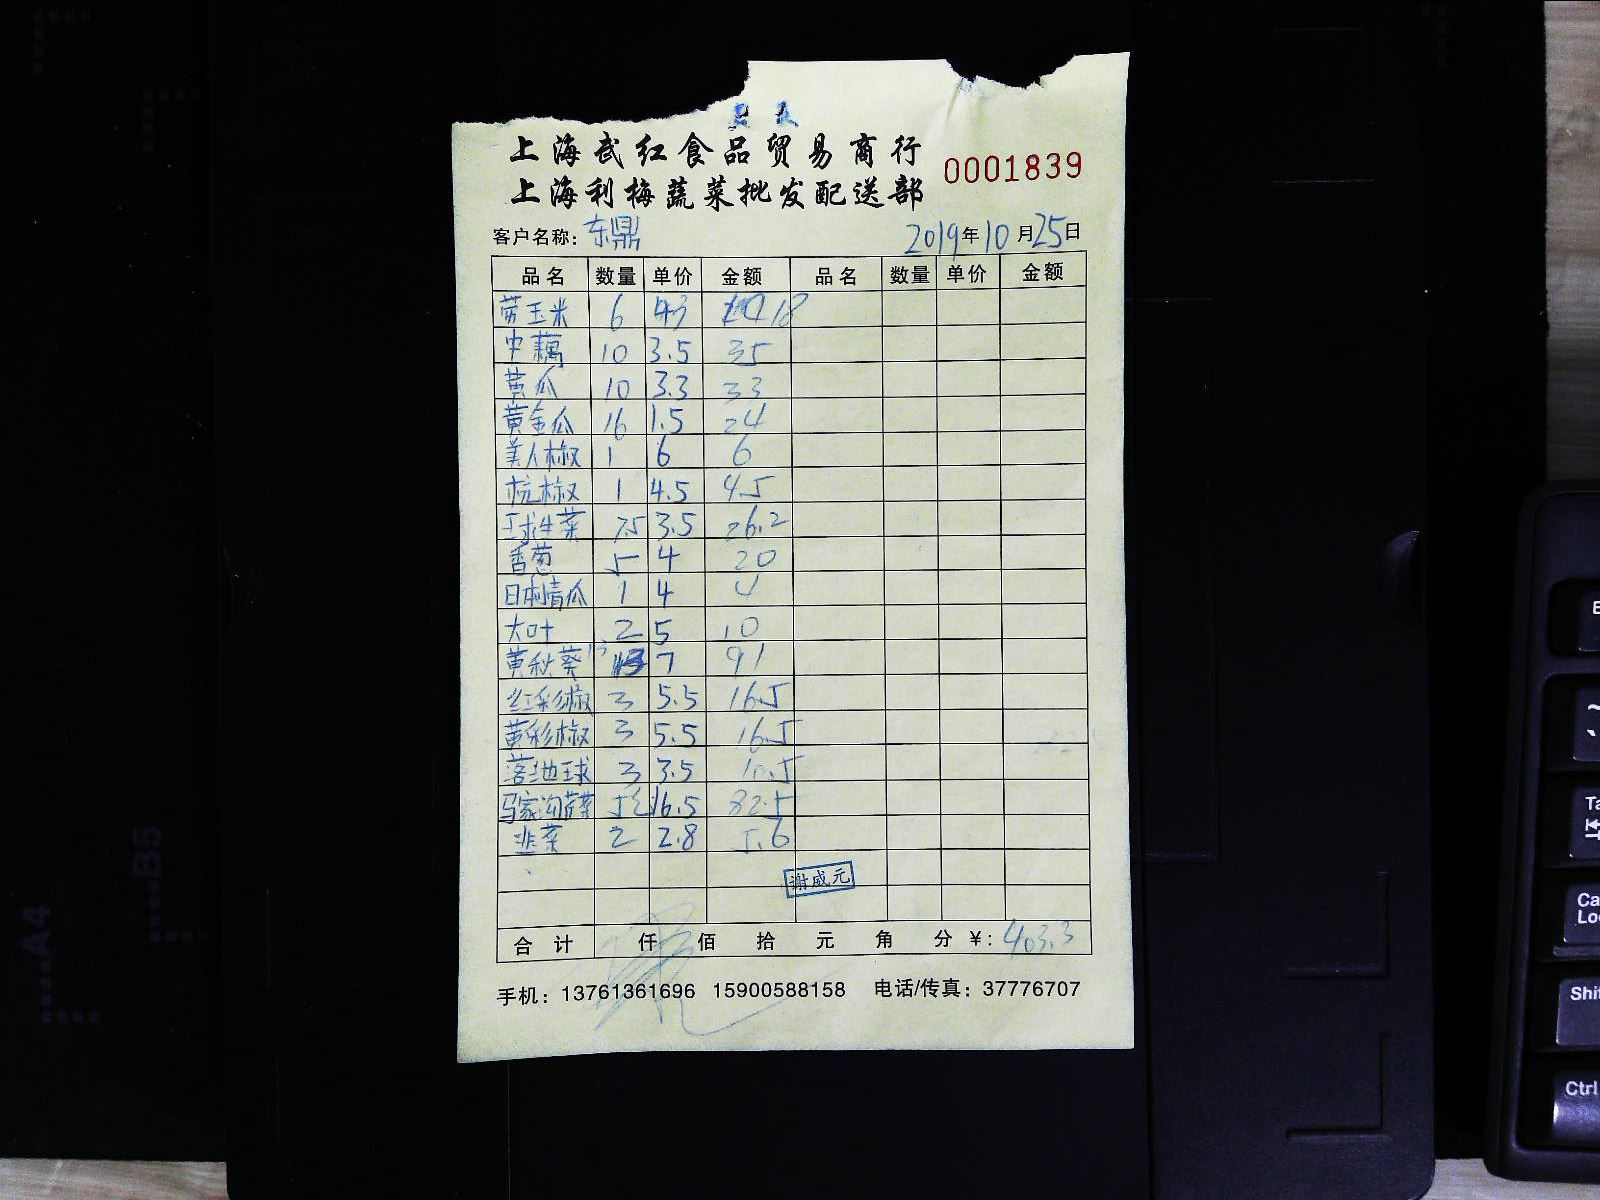 上海武红食品贸易商行
上海利梅蔬菜批发配送部
0001839
客户名称: 东鼎 2019年10月25日
品名 数量 单价 金额 品名 数量 单价 金额
玉米 6 3 18
中藕 10 3.5 35
黄瓜 10 3.3 33
黄金瓜 16 1.5 24
美人椒 1 6 6
杭椒 1 4.5 4.5
球生菜 7.5 3.5 26.2
香葱 5 4 20
日本青瓜 1 4 4
大叶 2 5 10
黄秋葵 13 7 91
红彩椒 3 5.5 16.5
黄彩椒 3 5.5 16.5
落地球 3 3.5 10.5
马家沟芹菜 5 16.5 82.5
韭菜 2 2.8 5.6
谢威元
合计 仟 佰 拾 元 角 分 ¥: 403.3
手机: 13761361696 15900588158 电话/传真: 37776707
A4
B5
Ctrl